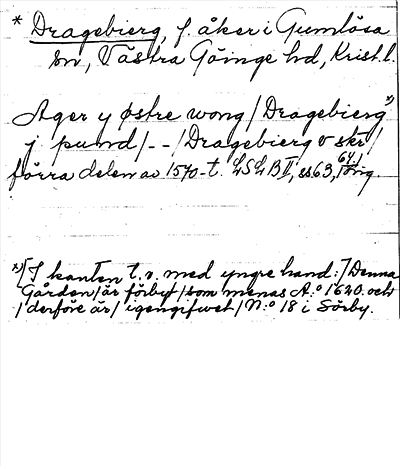 * Dragebierg, f. åker i Gumlösa
sn, Västra Göinge hd, Krist. l.
Ager y østre wong / Dragebierg x)
j pund / - - / Dragebierg v skr /
64.1
förra delen av 1570-t. LSLB II, ss 63, orig.
x) [I kanten t.v. med yngre hand:] Denna
Gården / är förbyt / som menas A:o 1620. och
/ derföre är / igengifwet / N:o 18 i Sörby.